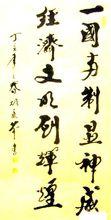 一國两制显神威
經濟文化創輝煌
丁亥年
書